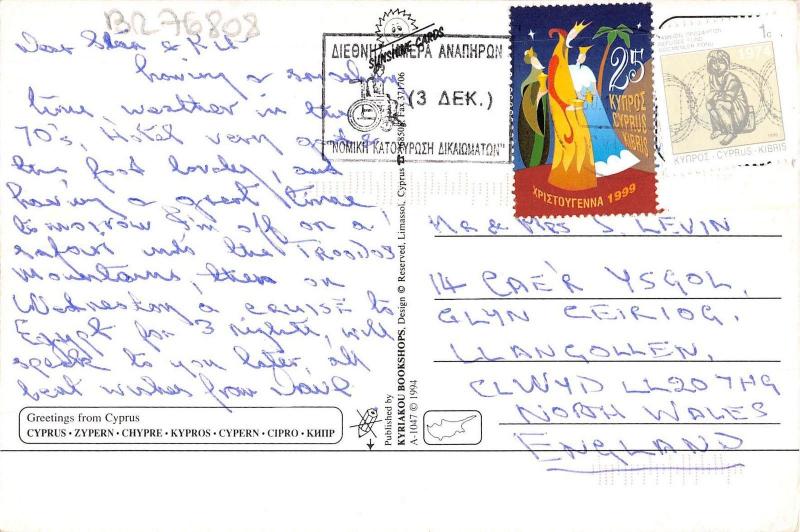 BR76808
Dear Stan &
having a
time, weather in the
70's, Hotel very good &
the food lovely, and
having a great time,
tomorrow I'm off on a
safari into the TROODOS
mountains, then on
Wednesday a CRUISE to
Egypt for 3 nights, will
speak to you later, all
best wishes from
Greetings from Cyprus
CYPRUS · ZYPERN · CHYPRE · KYPROS · CYPERN · CIPRO · КИПР
SUNSHINE CARDS
Published by
KYRIAKOU BOOKSHOPS, Design © Reserved, Limassol, Cyprus Fax 371706
A-1047 © 1994
ΔΙΕΘΝΗΣ ΗΜΕΡΑ ΑΝΑΠΗΡΩΝ
(3 ΔΕΚ.)
"ΝΟΜΙΚΗ ΚΑΤΟΧΥΡΩΣΗ ΔΙΚΑΙΩΜΑΤΩΝ"
25
ΚΥΠΡΟΣ
CYPRUS
KIBRIS
ΧΡΙΣΤΟΥΓΕΝΝΑ 1999
1c
1974
ΚΥΠΡΟΣ · CYPRUS · KIBRIS
MR & MRS S. LEVIN
14 CAE'R YSGOL,
GLYN CEIRIOG,
LLANGOLLEN,
CLWYD LL20 7HG
NORTH WALES
ENGLAND